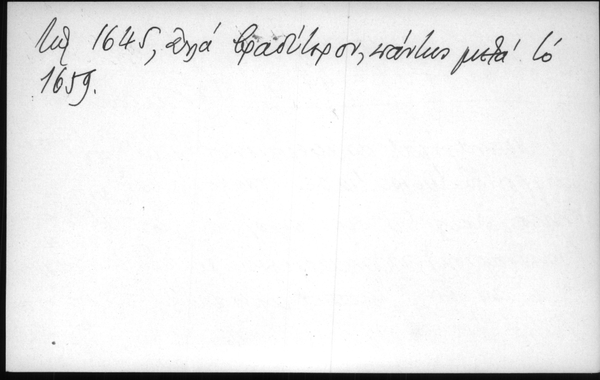 τῷ 1645, ἀλλά βραδύτερον, πάντως μετά τό
1659.